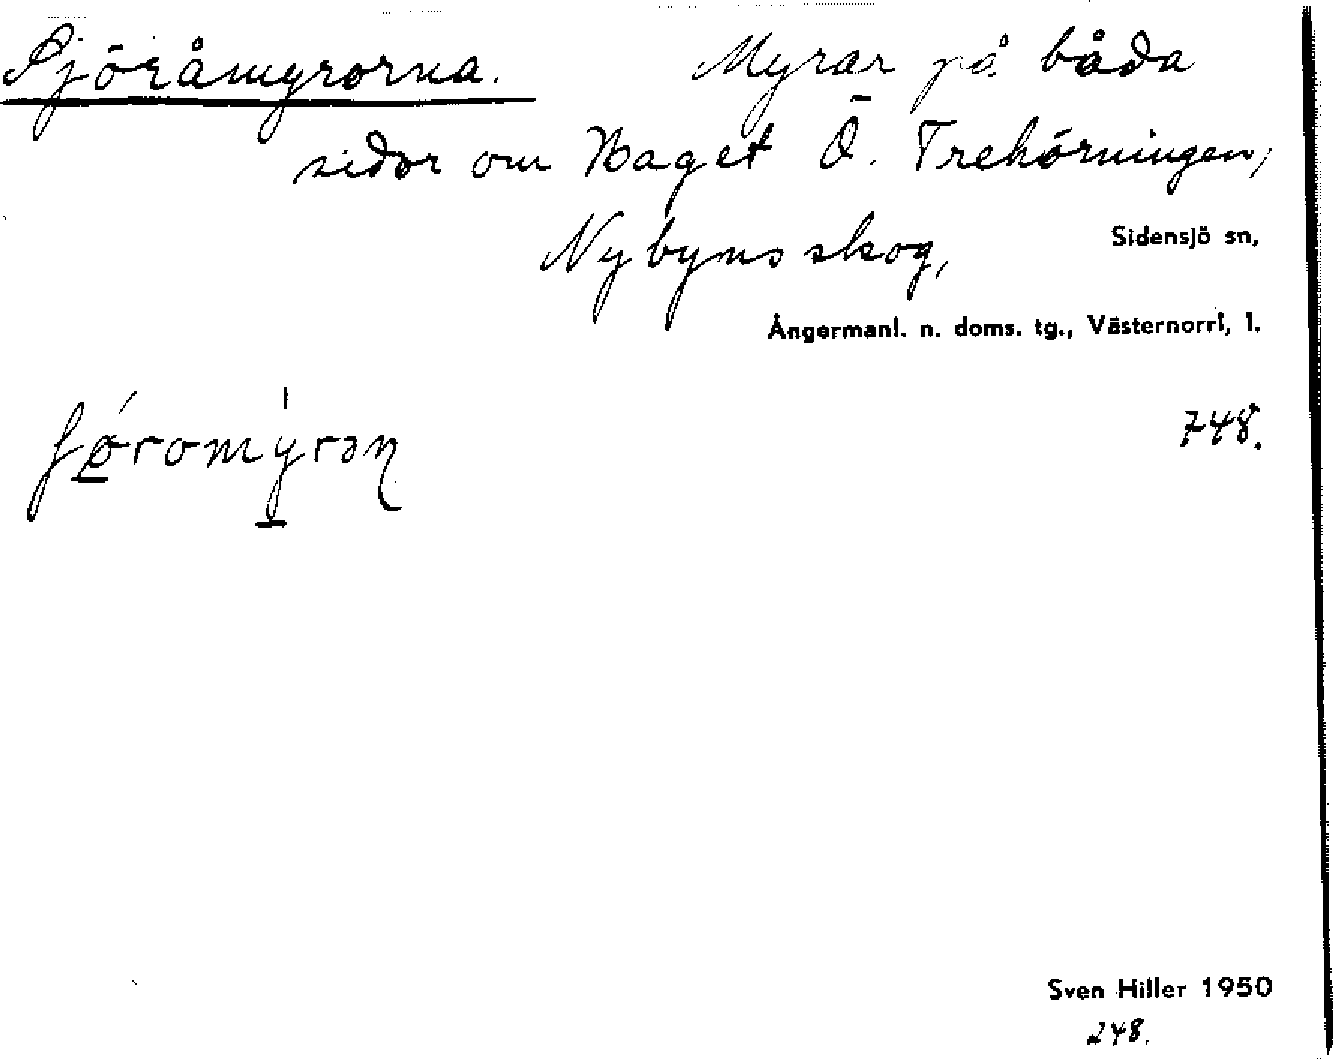 Sjöråmyrorna. Myrar på båda
sidor om Naget Ö. Trehörningen,
Nybyns skog, Sidensjö sn,
Ångermanl. n. doms. tg., Västernorrl. l.
748.
Sven Hiller 1950
248.